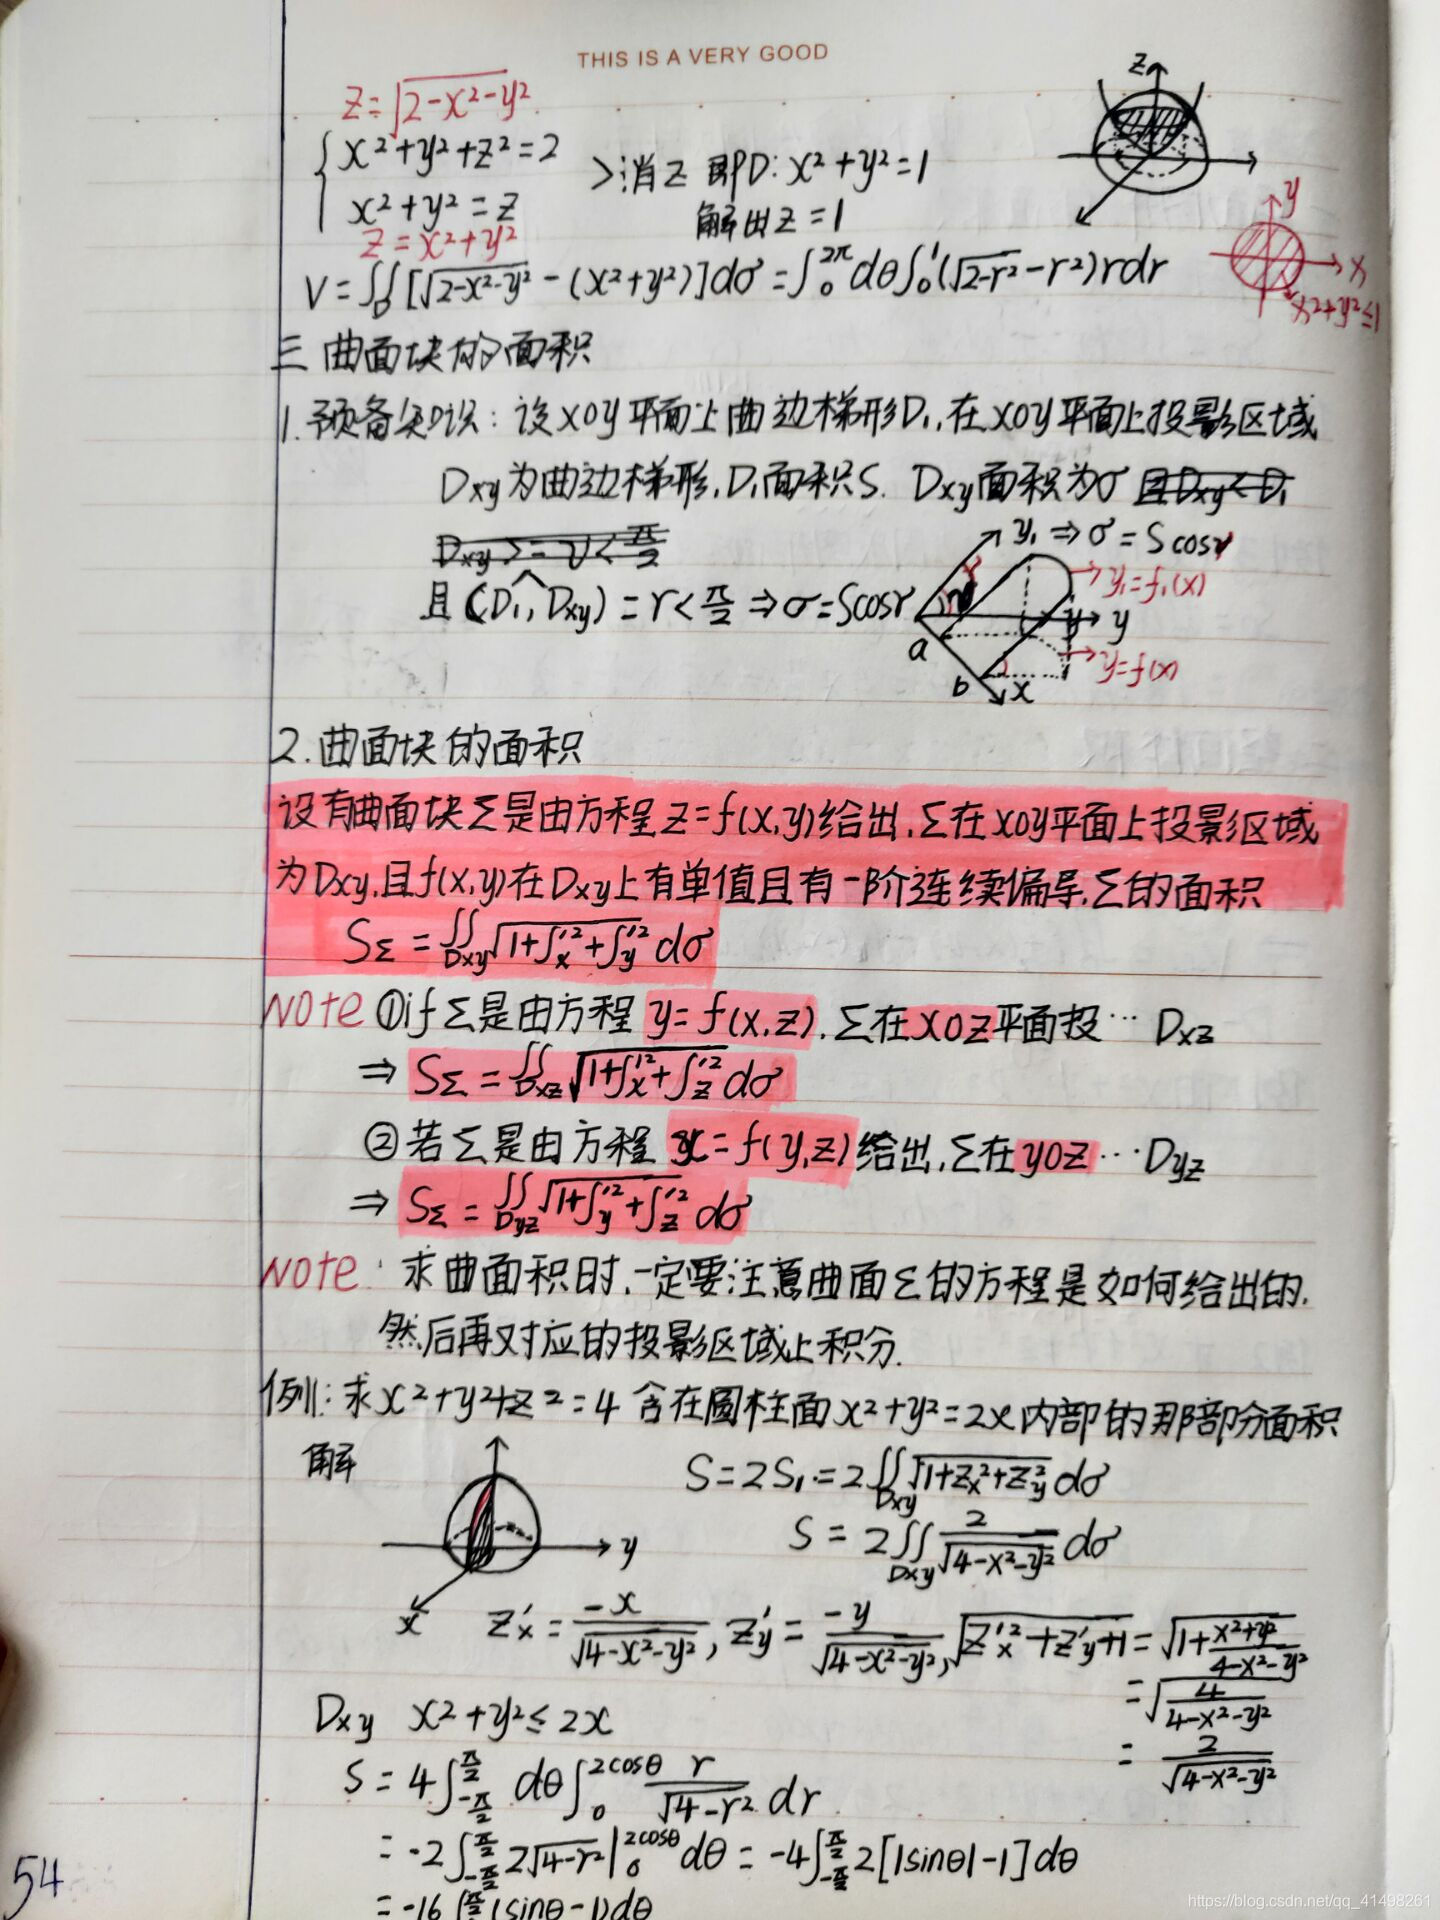 THIS IS A VERY GOOD
z=√2-x²-y²
{x²+y²+z²=2
x²+y²=z
>消z 即D: x²+y²=1
解出z=1
z=x²+y²
z
y
x
x²+y²≤1
V=∬D[√2-x²-y²-(x²+y²)]dσ=∫₀^2π dθ∫₀^1(√2-r²-r²)rdr
三 曲面块的面积
1.预备知识: 设xoy平面上曲边梯形D₁,在xoy平面上投影区域
Dxy为曲边梯形,D₁面积S. Dxy面积为σ 且Dxy<D₁
且(D₁^,Dxy)=r<π/2⇒σ=Scosr
y₁⇒σ=Scosr
y₁=f₁(x)
y
a
y=f(x)
b
x
2.曲面块的面积
设有曲面块Σ是由方程z=f(x,y)给出,Σ在xoy平面上投影区域
为Dxy,且f(x,y)在Dxy上有单值且有一阶连续偏导,Σ的面积
SΣ=∬Dxy√1+f'x²+f'y² dσ
Note ①if Σ是由方程 y=f(x,z),Σ在xoz平面投… Dxz
⇒ SΣ=∬Dxz√1+f'x²+f'z² dσ
②若Σ是由方程 x=f(y,z)给出,Σ在yoz…Dyz
⇒ SΣ=∬Dyz√1+f'y²+f'z² dσ
Note: 求曲面积时,一定要注意曲面Σ的方程是如何给出的,
然后再对应的投影区域上积分.
例1:求x²+y²+z²=4 含在圆柱面x²+y²=2x内部的那部分面积
解
y
x
S=2S₁=2∬Dxy√1+zx²+zy² dσ
S=2∬Dxy 2/√4-x²-y² dσ
z'x=-x/√4-x²-y², z'y=-y/√4-x²-y², √z'x²+z'y+1=√1+(x²+y²)/(4-x²-y²)
=√4/(4-x²-y²)
Dxy x²+y²≤2x
=2/√4-x²-y²
S=4∫-π/2^π/2 dθ∫₀^2cosθ r/√4-r² dr
=-2∫-π/2^π/2 2√4-r²|₀^2cosθ dθ=-4∫-π/2^π/2 2[|sinθ|-1]dθ
=-16∫^π/2(sinθ-1)dθ
54
https://blog.csdn.net/qq_41498261